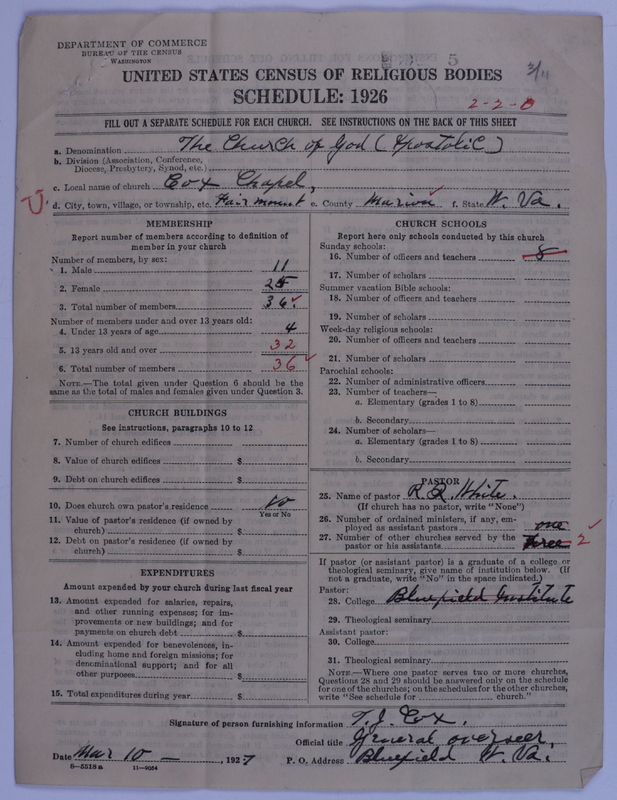 DEPARTMENT OF COMMERCE
BUREAU OF THE CENSUS
WASHINGTON
5
UNITED STATES CENSUS OF RELIGIOUS BODIES
SCHEDULE: 1926
2-2-0
FILL OUT A SEPARATE SCHEDULE FOR EACH CHURCH. SEE INSTRUCTIONS ON THE BACK OF THIS SHEET
a. Denomination The Church of God (Apostolic)
b. Division (Association, Conference,
Diocese, Presbytery, Synod, etc.)
c. Local name of church Cox Chapel,
d. City, town, village, or township, etc. Fairmount e. County Marion f. State W. Va.
MEMBERSHIP
Report number of members according to definition of
member in your church
Number of members, by sex:
1. Male 11
2. Female 25
3. Total number of members 36
Number of members under and over 13 years old:
4. Under 13 years of age 4
5. 13 years old and over 32
6. Total number of members 36
NOTE.—The total given under Question 6 should be the
same as the total of males and females given under Question 3.
CHURCH BUILDINGS
See instructions, paragraphs 10 to 12
7. Number of church edifices
8. Value of church edifices $
9. Debt on church edifices $
10. Does church own pastor's residence No
Yes or No
11. Value of pastor's residence (if owned by
church) $
12. Debt on pastor's residence (if owned by
church) $
EXPENDITURES
Amount expended by your church during last fiscal year
13. Amount expended for salaries, repairs,
and other running expenses; for im-
provements or new buildings; and for
payments on church debt $
14. Amount expended for benevolences, in-
cluding home and foreign missions; for
denominational support; and for all
other purposes $
15. Total expenditures during year $
CHURCH SCHOOLS
Report here only schools conducted by this church
Sunday schools:
16. Number of officers and teachers 8
17. Number of scholars
Summer vacation Bible schools:
18. Number of officers and teachers
19. Number of scholars
Week-day religious schools:
20. Number of officers and teachers
21. Number of scholars
Parochial schools:
22. Number of administrative officers
23. Number of teachers—
a. Elementary (grades 1 to 8)
b. Secondary
24. Number of scholars—
a. Elementary (grades 1 to 8)
b. Secondary
PASTOR
25. Name of pastor White.
(If church has no pastor, write "None")
26. Number of ordained ministers, if any, em-
ployed as assistant pastors one
27. Number of other churches served by the
pastor or his assistants three 2
If pastor (or assistant pastor) is a graduate of a college or
theological seminary, give name of institution below. (If
not a graduate, write "No" in the space indicated.)
Pastor:
28. College Bluefield Institute
29. Theological seminary
Assistant pastor:
30. College
31. Theological seminary
NOTE.—Where one pastor serves two or more churches,
Questions 28 and 29 should be answered only on the schedule
for one of the churches; on the schedules for the other churches,
write "See schedule for church."
Signature of person furnishing information T. J. Cox.
Official title General overseer,
Date Mar 10 —, 1927 P. O. Address Bluefield W. Va.
8-5518 a 11-9054